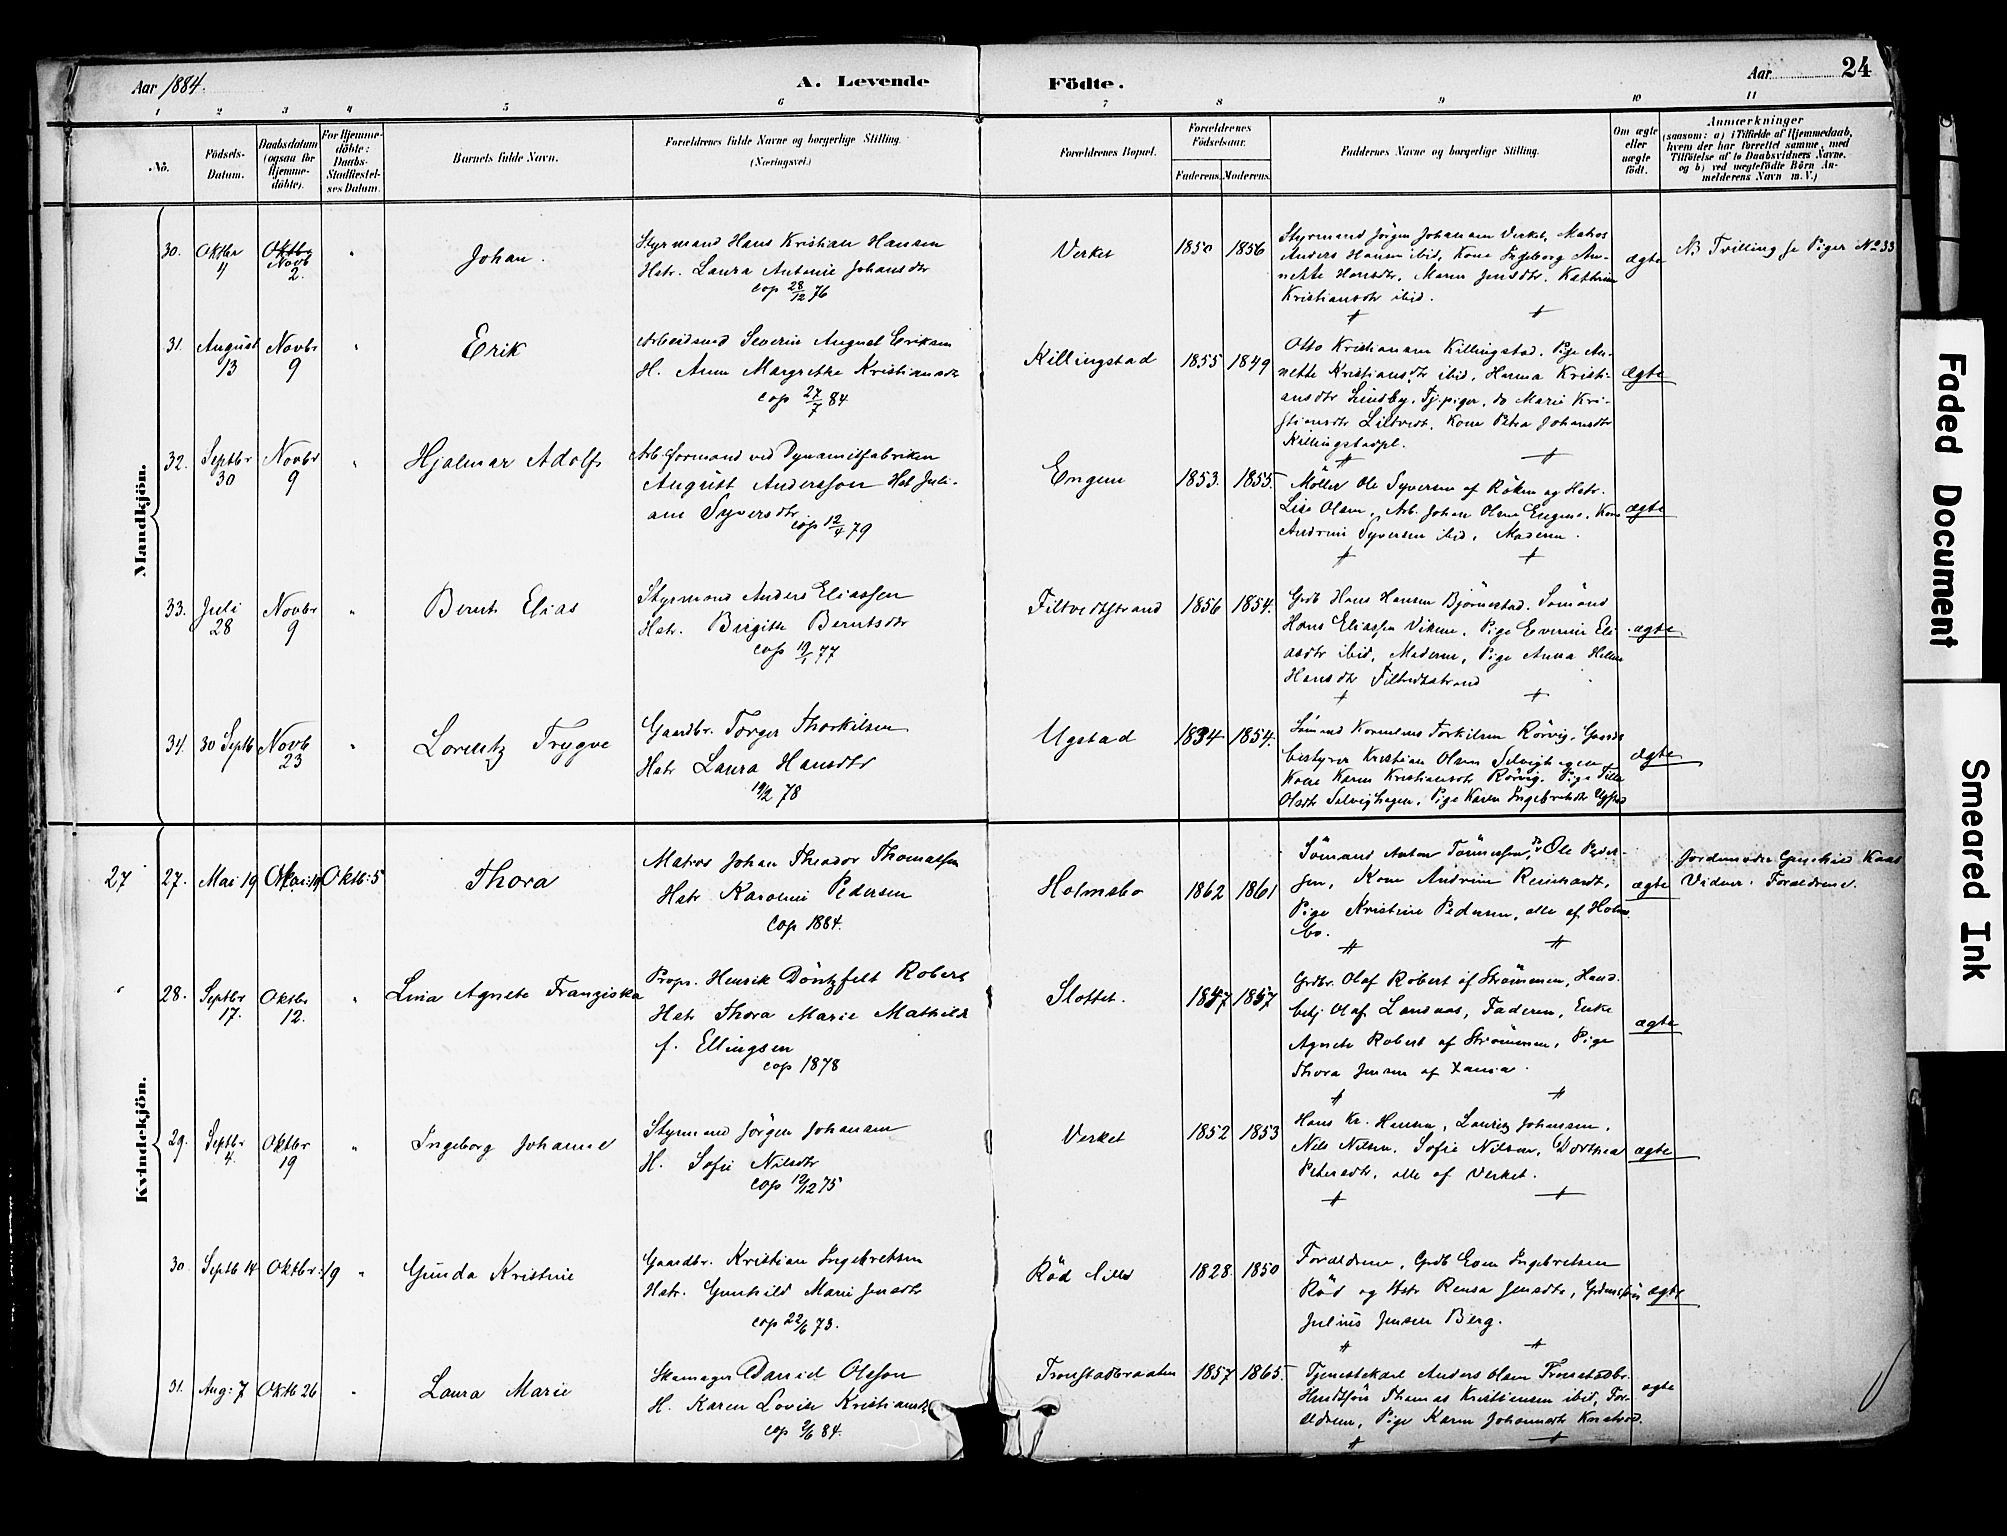 Aar 1884.
A. Levende Födte.
Aar 24
1 2 3 4 5 6 7 8 9 10 11
No.
Födsels-Datum.
Daabsdatum (ogsaa for Hjemme-döbte).
For Hjemme-döbte: Daabs-Stadfæstel-ses Datum.
Barnets fulde Navn.
Forældrenes fulde Navne og borgerlige Stilling. (Næringsvei.)
Forældrenes Bopæl.
Forældrenes Födselsaar.
Faderens. Moderens.
Faddernes Navne og borgerlige Stilling.
Om ægte eller uægte födt.
Anmærkninger
(saasom: a) i Tilfælde af Hjemmedaab, hvem der har forrettet samme, med Tilföielse af to Daabsvidners Navne. og b) ved uægtefödte Börn An-melderens Navn m. V.)
Mandkjön.
30. Oktbr 4 Oktbr Novb 2. " Johan.
Styrmand Hans Kristian Hansen
Hstr. Laura Antonie Johansdtr
cop 28/12 76
Verket 1850 1856
Styrmand Jörgen Johansen Verket, Matros
Anders Hansen ibid, Kone Ingeborg An-
nette Hansdtr, Maren Jensdtr. Kathrine
Kristiansdtr ibid.
ægte NB Tvilling se Piger No 33
31. August 13 Novbr 9 " Erik
Arbeidsmd Severin August Eriksen
H. Anne Margrethe Kristiansdtr
cop 27/7 84
Killingstad 1855 1849
Otto Kristiansen Killingstad. Pige An-
nette Kristiansdtr ibid, Hanna Kristi-
ansdtr Lindby, Tj.piger, do Marie Kri-
stiansdtr Liltvedt, Kone Petra Johansdtr
Killingstadpl.
ægte
32. Septbr 30 Novbr 9 " Hjalmar Adolf
Arb.formand ved Dynamitfabriken
August Andersson Hst Juli-
ane Syversdtr
cop 12/4 79
Engene 1853. 1855.
Möller Ole Syversen af Röken og Hstr.
Lise Olsen, Arb. Johan Olsen Engene, Kone
Andrine Syversen ibid, Moderen.
ægte
33. Juli 28 Novbr 9 " Bernt Elias
Styrmand Anders Eliassen
Hstr. Birgitte Berntsdtr
cop 19/1 77
Filtvedtstrand 1856 1854.
Grdb Hans Hansen Björnestad. Sömand
Hans Eliassen Vikene, Pige Everine Eli-
asdtr ibid, Moderen, Pige Anna Helene
Hansdtr Filtvedtstrand
ægte
34. 30 Septb Novb 23 " Lorentz Trygve
Gaardbr. Torger Thorkilsen
Hstr Laura Hansdtr
19/2 78
Ugstad 1834 1854.
Sömand Kornelius Torkilsen Rörvig, Gaards
bestyrer Kristian Olsen Selvighagen
Kone Karen Kristiansdtr Rörvig. Pige
Olsdtr Selvighagen, Pige Karen Ingebretsdtr Ugstad
ægte
Kvindekjön.
27 27. Mai 19 Mai 19 Oktb: 5 Thora
Matros Johan Theodor Thomassen
Hstr Karoline Pedersen
Cop 1884.
Holmsbo 1862 1861
Sömand Anton Tönnessen, Do Ole Peder-
sen, Kone Andrine Reinhardt,
Pige Kristine Pedersen, alle af Holms
bo.
ægte
Jordmoder Gunhild Kaas
Vidner: Forældrene.
28. Septbr 17. Oktbr 12. " Lina Agnete Franziska
Prop. Henrik Döntzfelt Robert
Hstr Thora Marie Mathilde
f. Ellingsen
cop 1878
Slottet. 1847 1857
Grdbr. Olaf Robert af Strömmen, Hand.
betj Olaf Landaas, Faderen, Enke
Agnete Robert af Strömmen, Pige
Thora Jensen af Xania.
ægte
29. Septbr 4. Oktbr 19 " Ingeborg Johanne
Styrmand Jörgen Johansen
H. Sofie Nilsdtr
cop 19/12 75
Verket 1852 1853
Hans Kr. Hansen, Lauritz Johansen,
Nils Nilsen, Sofie Nilsen, Dorthea
Petersdtr, alle af Verket.
ægte
30. Septb 14 Oktbr: 19 " Gunda Kristine
Gaardbr. Kristian Ingebretsen
Hstr. Gunhild Marie Jensdtr
cop 22/6 73.
Röd lille 1828. 1850
Forældrene, Grdb Even Ingebretsen
Röd og Hstr Rensa Jensdtr, Grdmandssön
Julius Jensen Berg.
ægte
31. Aug: 7 Oktb 26 " Laura Marie
Skomager David Olsson
H. Karen Lovise Kristiansdtr
cop 2/6 84.
Tronstadbraaten 1857 1865.
Tjenestekarl Anders Olsen Tronstadbr.
Thomas Kristiansen ibid, For-
ældrene, Pige Karen Johannesdtr
ægte
Faded Document
Smeared Ink